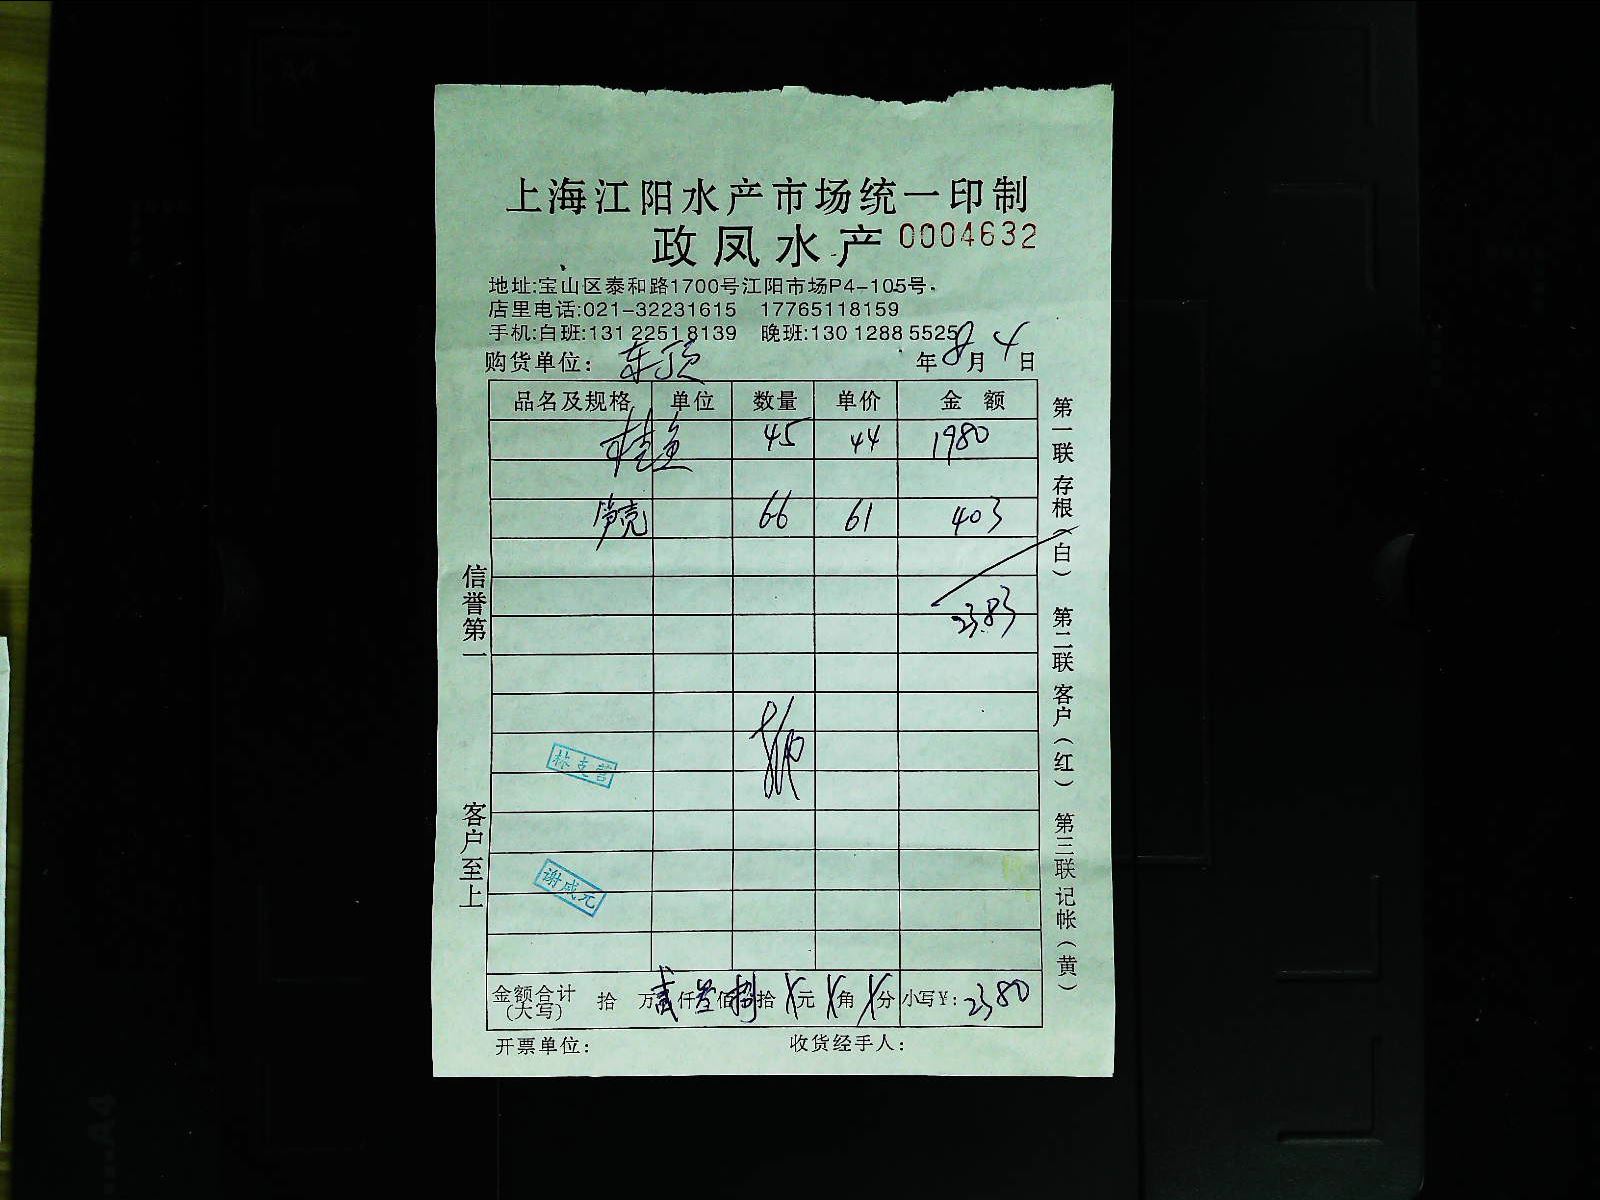 上海江阳水产市场统一印制
政凤水产 0004632
地址:宝山区泰和路1700号江阳市场P4-105号.
店里电话:021-32231615 17765118159
手机:白班:131 2251 8139 晚班:130 1288 5525
购货单位: 年8月4日
品名及规格 单位 数量 单价 金额
桂鱼 45 44 1980
笋壳 66 61 403
2383
林
谢成元
金额合计(大写) 拾 万贰仟叁佰捌拾X元X角X分 小写¥: 2380
开票单位: 收货经手人:
信誉第一
客户至上
第一联 存根(白) 第二联 客户(红) 第三联 记帐(黄)